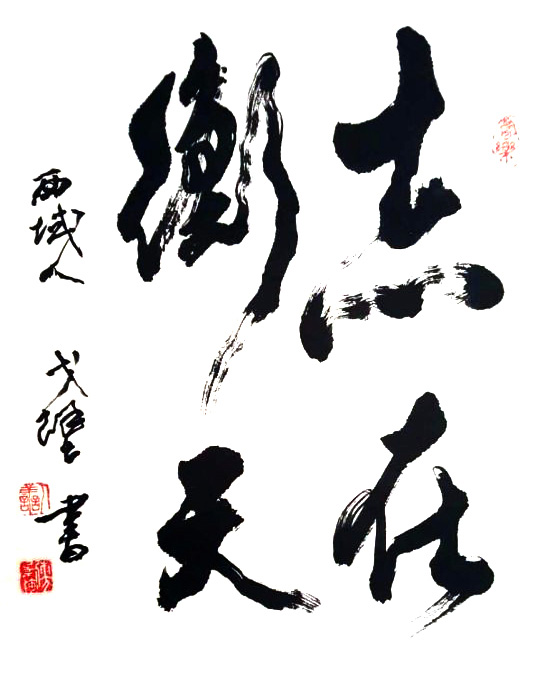 志在
衝天
西域人戈壁書